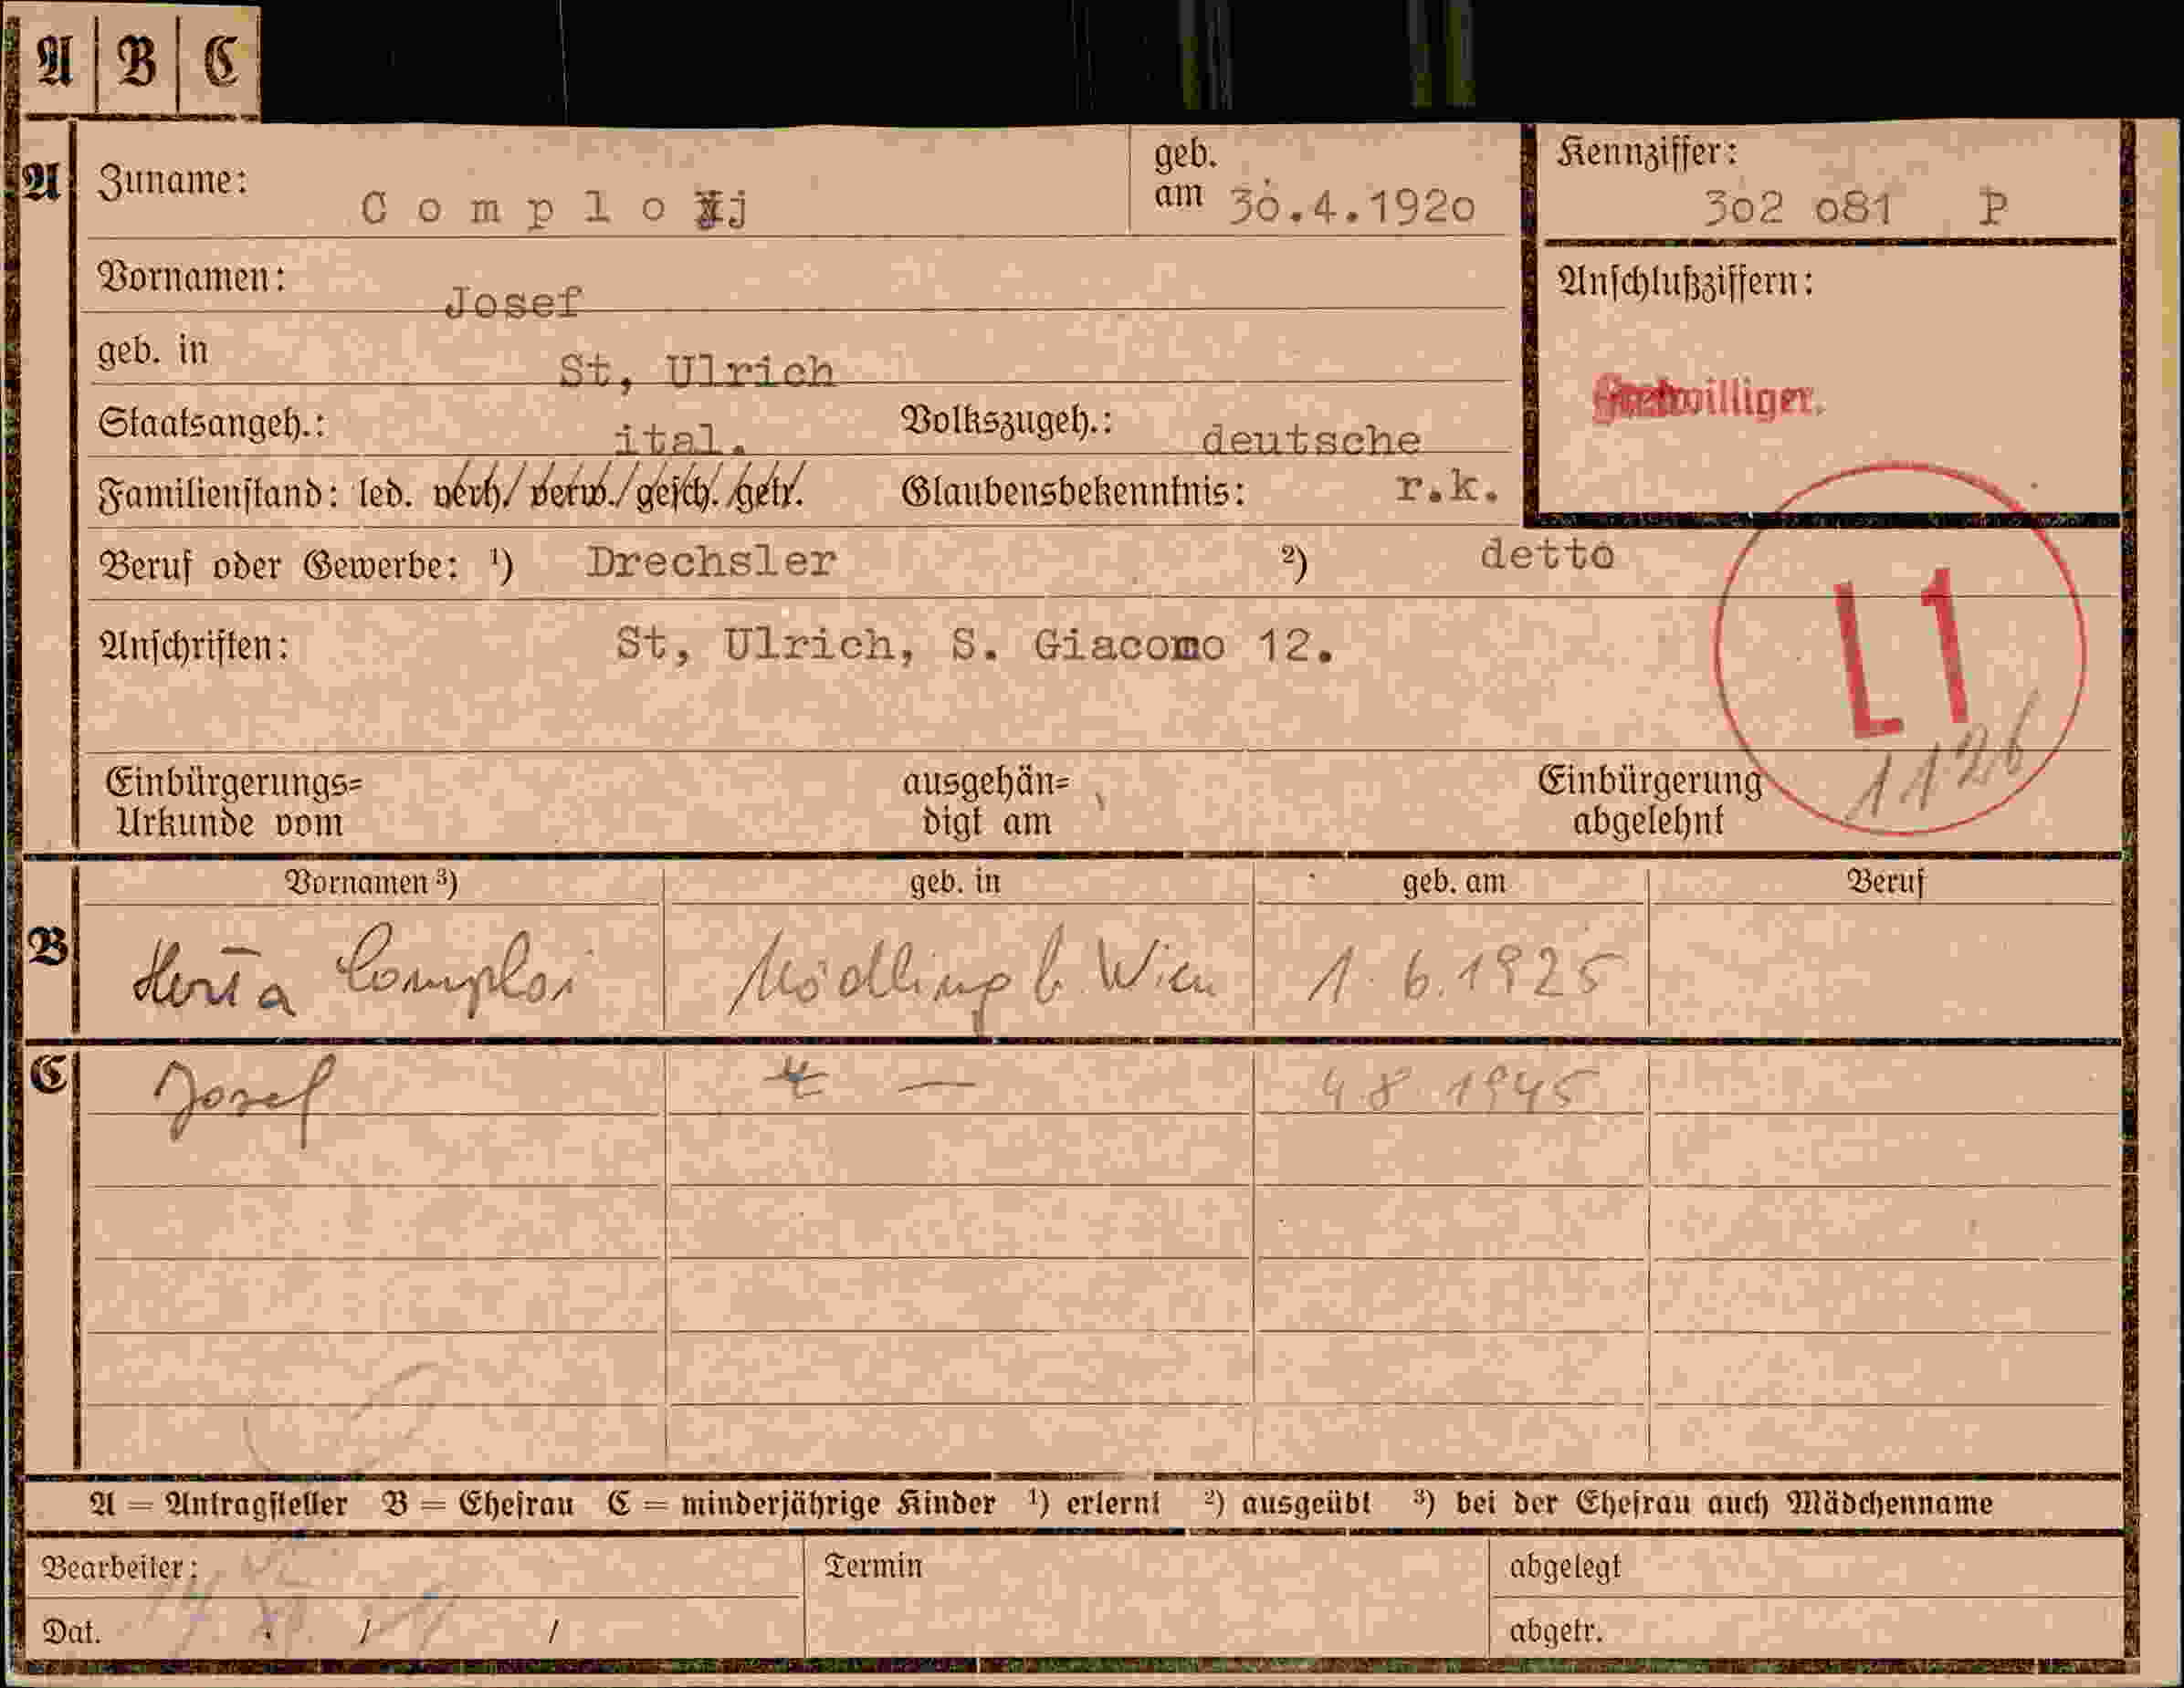 A B C
A Zuname: Comploj geb. am 30.4.1920 Kennziffer: 302 081 P
Vornamen: Josef Anschlußziffern:
geb. in St, Ulrich
Freiwilliger.
Staatsangeh.: ital. Volkszugeh.: deutsche
Familienstand: led. verh./verw./gesch./getr. Glaubensbekenntnis: r.k.
Beruf oder Gewerbe: ¹) Drechsler ²) detto
L1
Anschriften: St, Ulrich, S. Giacomo 12.
1126
Einbürgerungs= ausgehän= Einbürgerung
Urkunde vom digt am abgelehnt
Vornamen ³) geb. in geb. am Beruf
B Herta Comploi Mödling b. Wien 1.6.1925
C Josef — 4.8.1945
A = Antragsteller B = Ehefrau C = minderjährige Kinder ¹) erlernt ²) ausgeübt ³) bei der Ehefrau auch Mädchenname
Bearbeiter: Termin abgelegt
Dat. / / abgetr.